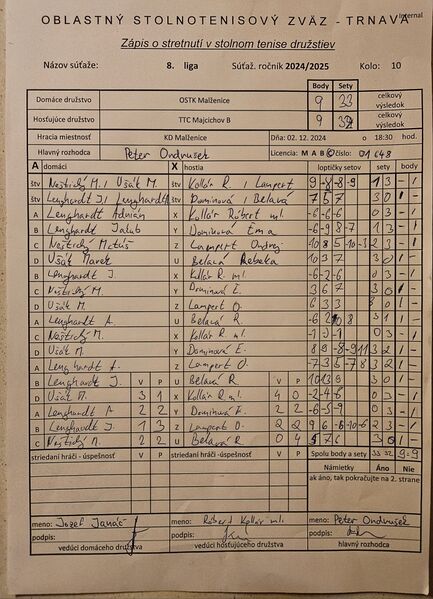 Internal
OBLASTNÝ STOLNOTENISOVÝ ZVÄZ - TRNAVA
Zápis o stretnutí v stolnom tenise družstiev
Názov súťaže: 8. liga Súťaž. ročník 2024/2025 Kolo: 10
Body Sety
Domáce družstvo OSTK Malženice 9 33 celkový výsledok
Hosťujúce družstvo TTC Majcichov B 9 32 celkový výsledok
Hracia miestnosť KD Malženice Dňa: 02. 12. 2024 o 18:30 hod.
Hlavný rozhodca Peter Ondrušek Licencia: M A B C číslo: 01648
A domáci X hostia loptičky setov sety body
štv Neštický M. / Ušák M. štv Kollár R. / Lampert 9 -8 -8 -9 1 3 - 1
štv Lenghardt J. / Lenghardt štv Dominová / Belavá 7 5 7 3 0 1 -
A Lenghardt Adrián X Kollár Róbert ml. -6 -6 -6 0 3 - 1
B Lenghardt Jakub Y Dominová Ema -6 -9 8 -7 1 3 - 1
C Neštický Matúš Z Lampert Ondrej 10 8 5 -10 -3 2 3 - 1
D Ušák Marek U Belavá Rebeka 10 3 7 3 0 1 -
B Lenghardt J. X Kollár R. ml. -6 -2 -6 0 3 - 1
C Neštický M. Y Dominová E. 3 6 7 3 0 1 -
D Ušák M. Z Lampert O. 6 3 3 3 0 1 -
A Lenghardt A. U Belavá R.
C Neštický M. X Kollár R. ml. 0 3 - 1
D Ušák M. Y Dominová E. 8 9 -8 -9 11 3 2 1 -
A Lenghardt A. Z Lampert O. -7 3 5 -7 8 3 2 1 -
B Lenghardt J. V P U Belavá R. V P 10 13 9 3 0 1 -
D Ušák M. 3 1 X Kollár R. ml. 4 0 -2 -4 -6 0 3 - 1
A Lenghardt A 2 2 Y Dominová E. 2 2 -6 -5 -9 0 3 - 1
B Lenghardt J. 1 3 Z Lampert O. 2 2 9 6 -8 -10 -6 2 3 - 1
C Neštický M. 2 2 U Belavá R 0 4 5 7 6 3 0 1 -
striedaní hráči - úspešnosť striedaní hráči - úspešnosť Spolu body a sety 33 32 9=9
Námietky Áno Nie
ak áno, tak pokračujte na 2. strane
meno: Jozef Janáč meno: Róbert Kollár ml. meno: Peter Ondrušek
podpis: podpis: podpis:
vedúci domáceho družstva vedúci hosťujúceho družstva hlavný rozhodca